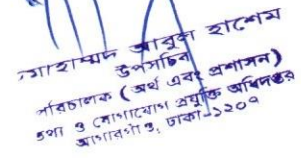 মোহাম্মদ আবুল হাশেম
উপসচিব
পরিচালক (অর্থ এবং প্রশাসন)
তথ্য ও যোগাযোগ প্রযুক্তি অধিদপ্তর
আগারগাঁও, ঢাকা-১২০৭